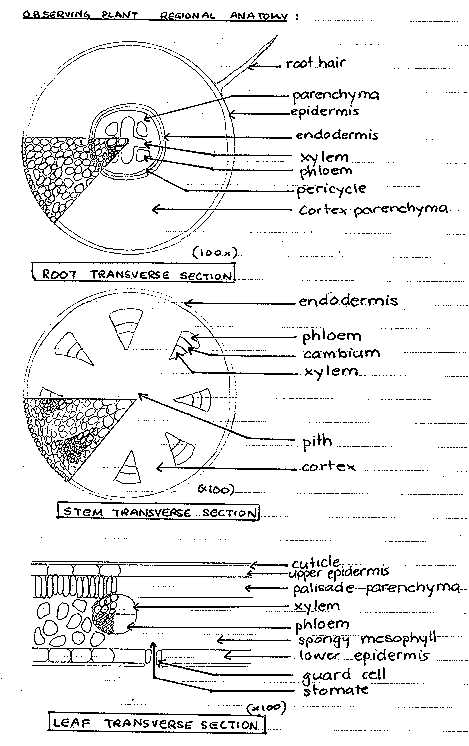 OBSERVING PLANT REGIONAL ANATOMY :
root hair
parenchyma
epidermis
endodermis
xylem
phloem
pericycle
cortex parenchyma
(100x)
ROOT TRANSVERSE SECTION
endodermis
phloem
cambium
xylem
pith
cortex
(x100)
STEM TRANSVERSE SECTION
cuticle
upper epidermis
palisade parenchyma
xylem
phloem
spongy mesophyll
lower epidermis
guard cell
stomate
(x100)
LEAF TRANSVERSE SECTION